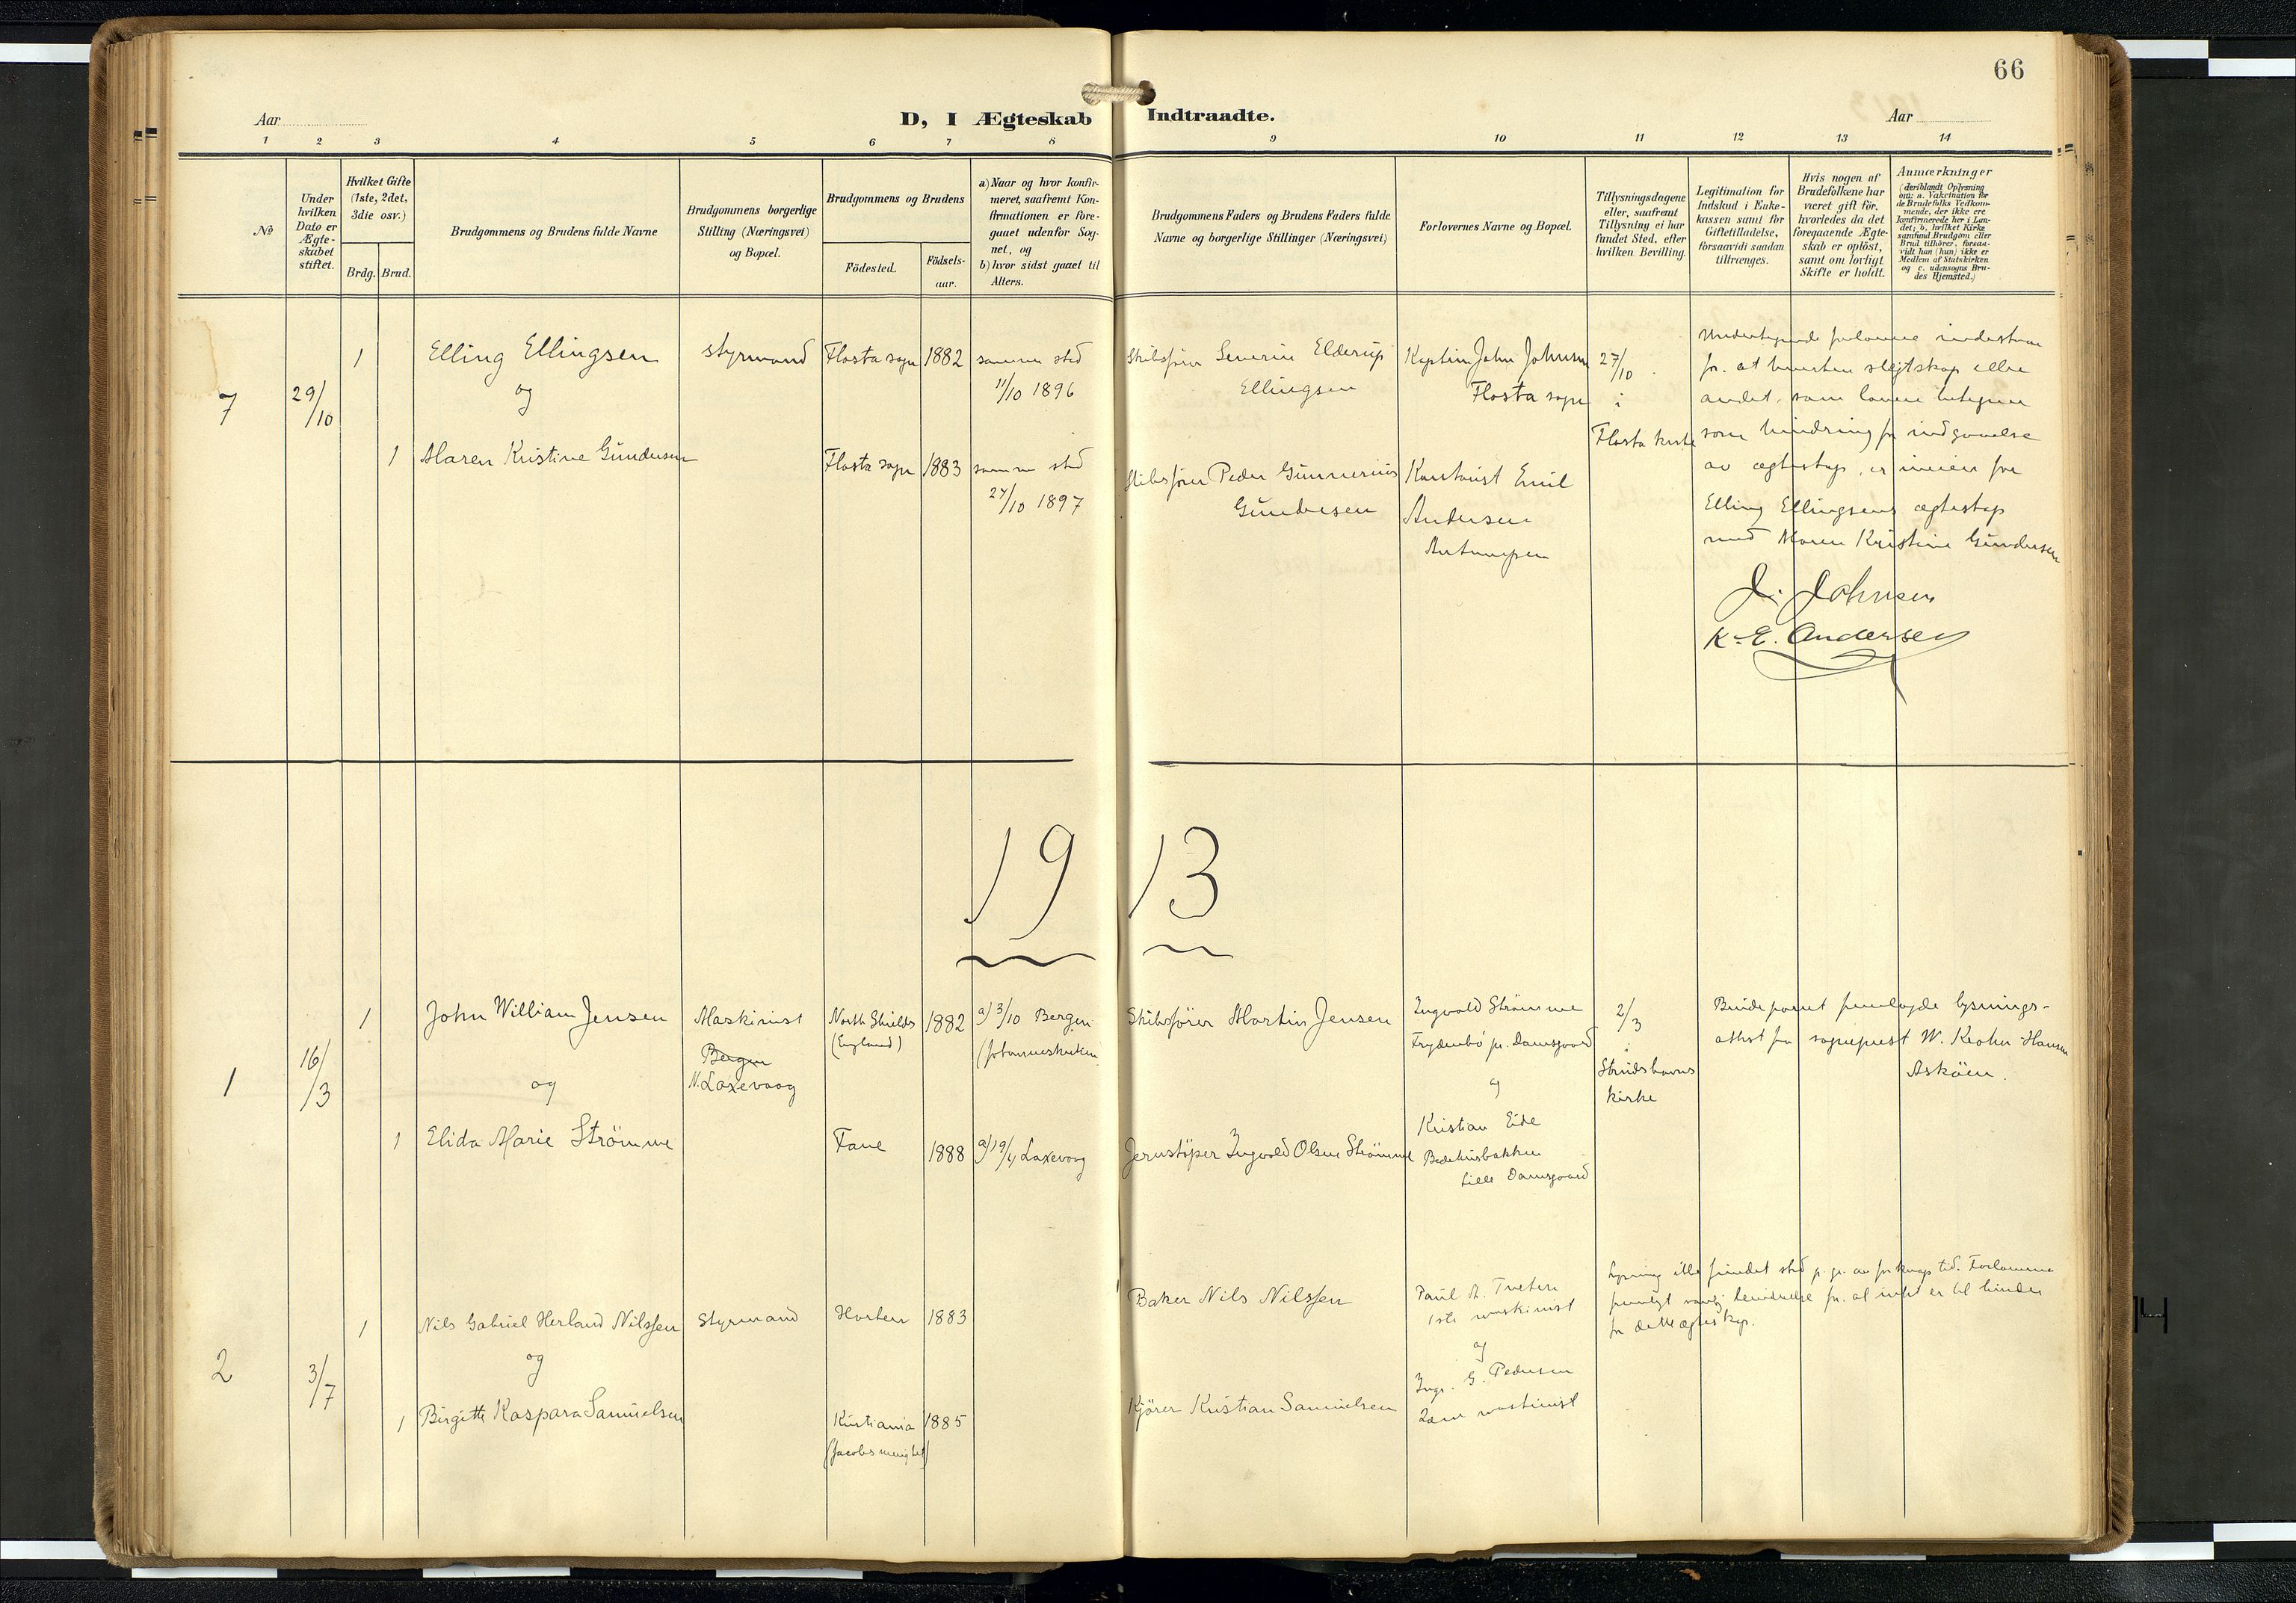 66
Aar
D, I Ægteskab Indtraadte.
Aar
1 2 3 4 5 6 7 8 9 10 11 12 13 14
No
Under hvilken Dato er Ægteskabet stiftet.
Hvilket Gifte (1ste, 2det, 3die osv.)
Brdg. Brud.
Brudgommens og Brudens fulde Navne
Brudgommens borgerlige Stilling (Næringsvei) og Bopæl.
Brudgommens og Brudens
Födested.
Födsels-aar.
a) Naar og hvor konfirmeret, saafremt Konfirmationen er foregaaet udenfor Sognet, og
b) hvor sidst gaaet til Alters.
Brudgommens Faders og Brudens Faders fulde Navne og borgerlige Stillinger (Næringsvei)
Forlovernes Navne og Bopæl.
Tillysningsdagene eller, saafremt Tillysning ei har fundet Sted, efter hvilken Bevilling.
Legitimation for Indskud i Enkekassen samt for Giftetilladelse, forsaavidt saadan tiltrænges.
Hvis nogen af Brudefolkene har været gift för, hvorledes da det foregaaende Ægteskab er oplöst, samt om lovligt Skifte er holdt.
Anmærkninger (deriblandt Oplysning om: a. Vakcination for de Brudefolks Vedkommende, der ikke ere konfirmerede her i Landet; b. hvilket Kirkesamfund Brudgom eller Brud tilhörer, forsaavidt han (hun) ikke er Medlem af Statskirken og c. udensogns Brudes Hjemsted.)
7
29/10
1
Elling Ellingsen
og
styrmand
Flosta sogn
1882
samme sted
11/10 1896
Skibsfører Severin Elderup
Ellingsen
Kaptein John Johnsen
Flosta sogn
27/10
i
Flosta kirke
1
Maren Kristine Gundersen
Flosta sogn
1883
samme sted
24/10 1897
Skibsfører Peder Gunnerius
Gundersen
Kontorist Emil
Andersen
Antwerpen
Undertegnede forlovere indestaar
for at hverken slegtskap eller
andet, som loven betegner
som hindring for indgaaelse
av ægteskap, er iveien for
Elling Ellingsens ægteskap
med Maren Kristine Gundersen
J. Johnsen
K. E. Andersen
1913
1
16/3
1
John William Jensen
og
Maskinist
Bergen
N. Laxevaag
North Shields
(England)
1882
a) 3/10 Bergen
(Johanneskirken
Skibsfører Martin Jensen
Ingvald Strömme
Frydenbö pr. Damsgaard
og
2/3
i
Strudshavns
kirke
Brudeparret fremlagde lysnings-
attest fra sogneprest W. Krohn-Hansen
Asköen.
1
Elida Marie Strömme
Fane
1888
a) 19/4 Laxevaag
Jernstöper Ingvald Olsen Strömme
Kristian Eide
Bedehusbakken
Lille Damsgaard
2
3/7
1
Nils Gabriel Herland Nilssen
og
Styrmand
Horten
1883
Baker Nils Nilssen
Paul A. Tveten
1ste maskinist
og
Lysning ikke fundet sted p. gr. av for knap tid. Forloverne
for dette ægteskap.
1
Birgitte Kaspara Samuelsen
Kristiania
(Jacobs menighet)
1885
Kjörer Kristian Samuelsen
Ingv. G. Pedersen
2den maskinist